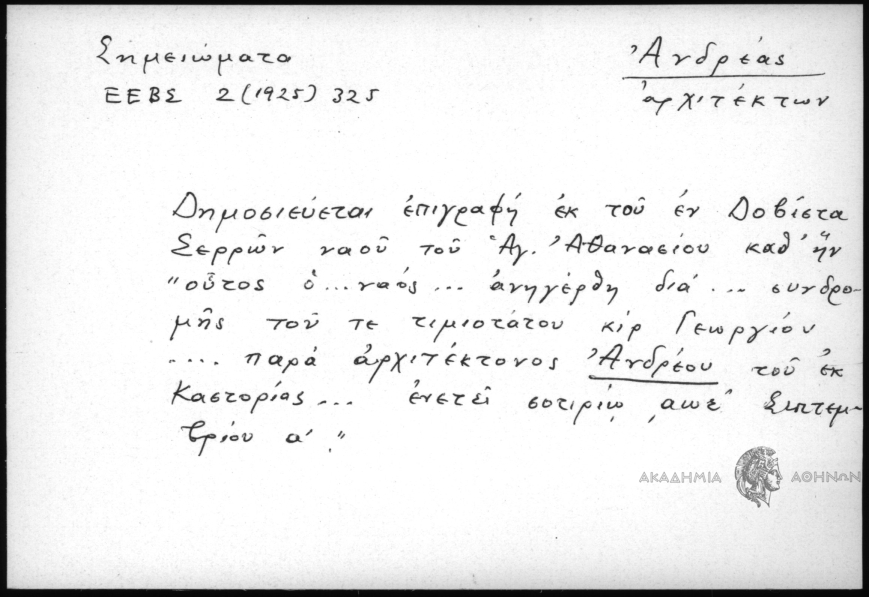 Σημειώματα
ΕΕΒΣ 2 (1925) 325
Ἀνδρέας
ἀρχιτέκτων
Δημοσιεύεται ἐπιγραφή ἐκ τοῦ ἐν Δοβίστα
Σερρῶν ναοῦ τοῦ Ἁγ. Ἀθανασίου καθ' ἥν
"οὗτος ὁ... ναός... ἀνηγέρθη διά... συνδρο-
μῆς τοῦ τε τιμιοτάτου κίρ Γεωργίου
.... παρά ἀρχιτέκτονος Ἀνδρέου τοῦ ἐκ
Καστορίας... ἐνετεῖ σοτιρίῳ ͵αωε΄ Σιπτεμ-
βρίου α΄."
ΑΚΑΔΗΜΙΑ ΑΘΗΝΩΝ